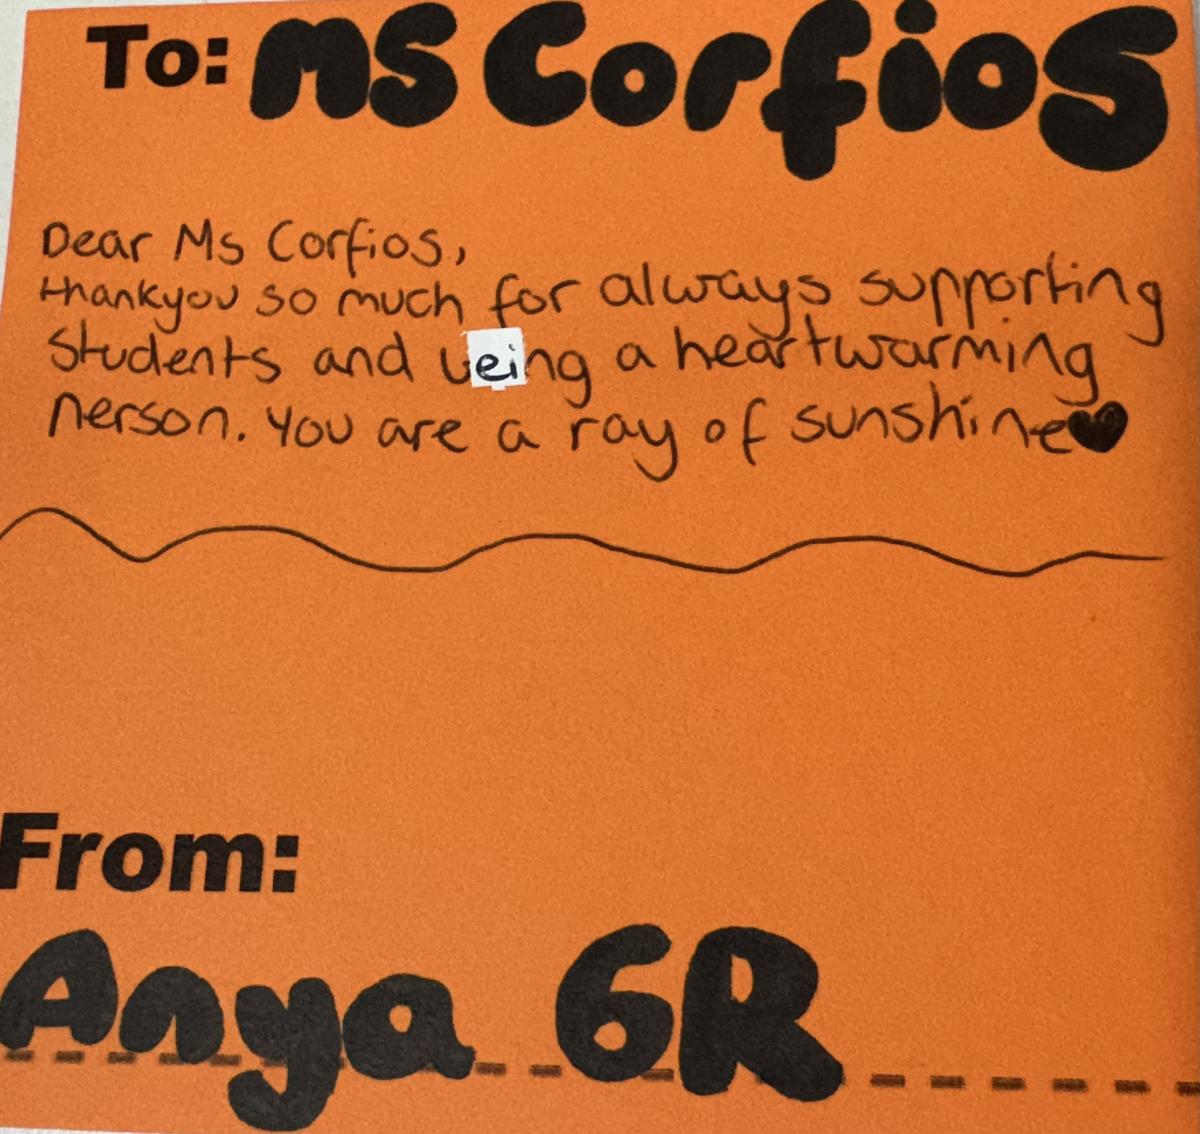 To: Ms Corfios
Dear Ms Corfios,
thankyou so much for always supporting
students and being a heartwarming
person. You are a ray of sunshine♥
From:
Anya 6R